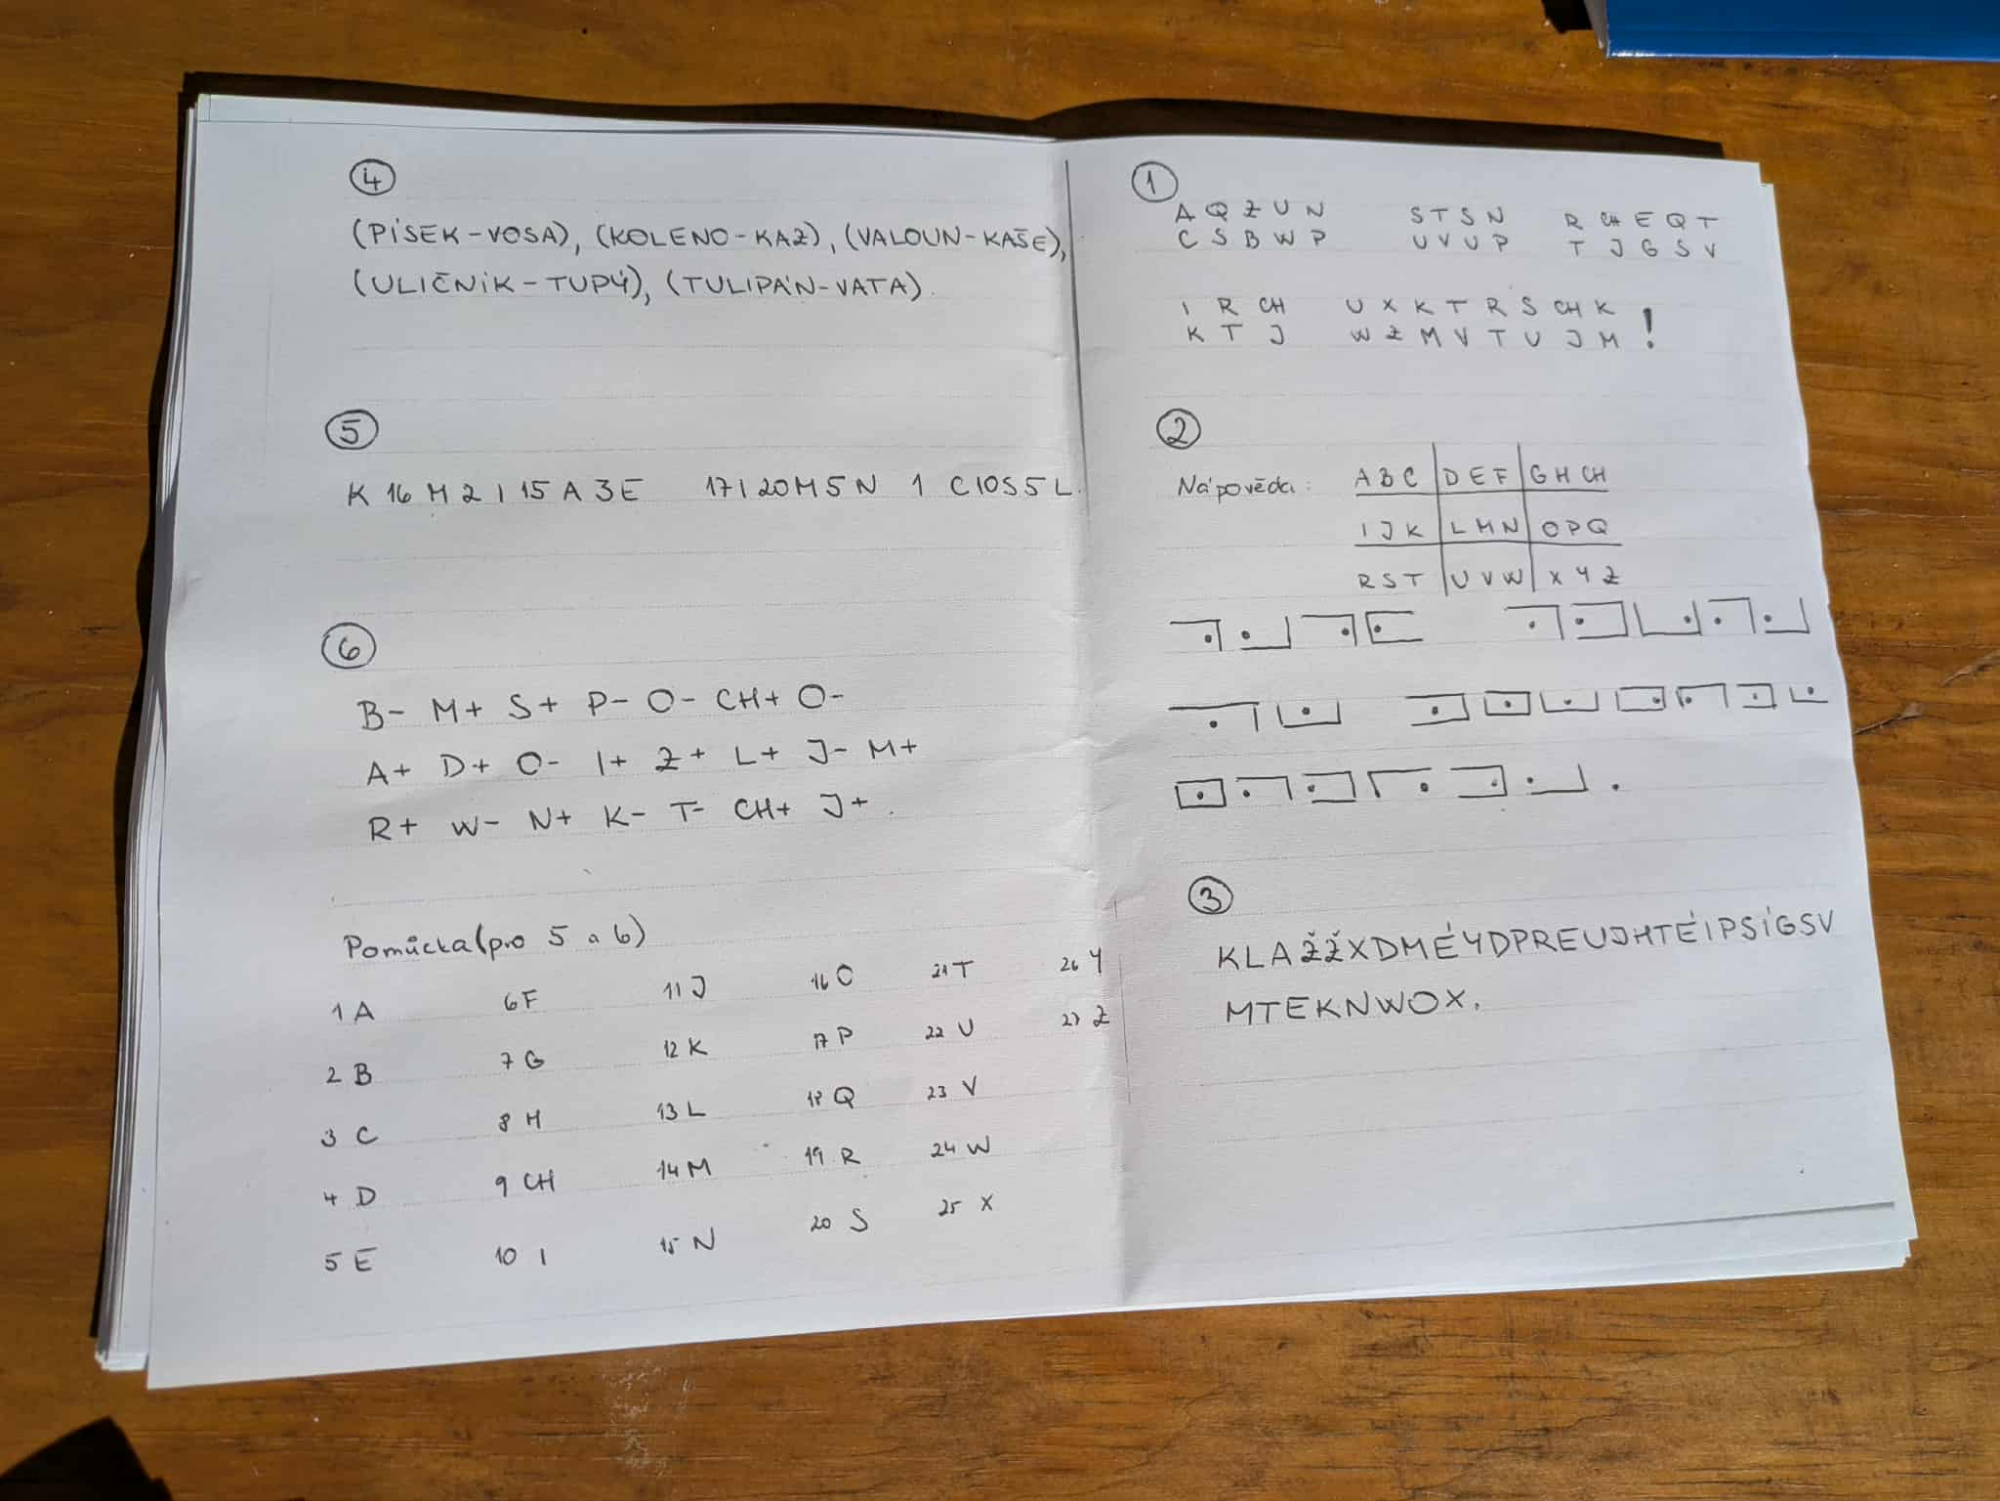 4
(PÍSEK-VOSA), (KOLENO-KAZ), (VALOUN-KAŠE),
(ULIČNÍK-TUPÝ), (TULIPÁN-VATA).
5
K 16 M 2 I 15 A 3 E 17 I 20 M 5 N 1 C 10 S 5 L.
6
B- M+ S+ P- O- CH+ O-
A+ D+ O- I+ Z+ L+ J- M+
R+ W- N+ K- T- CH+ J+.
Pomůcka (pro 5 a 6)
1 A 6 F 11 J 16 O 21 T 26 Y
2 B 7 G 12 K 17 P 22 U 27 Z
3 C 8 H 13 L 18 Q 23 V
4 D 9 CH 14 M 19 R 24 W
5 E 10 I 15 N 20 S 25 X
1
A Q Z U N S T S N R CH E Q T
C S B W P U V U P T J G S V
I R CH U X K T R S CH K !
K T J W Z M V T U J M
2
Nápověda: A B C D E F G H CH
I J K L M N O P Q
R S T U V W X Y Z
3
KLAŽŽXDMÉYDPREUJHTÉIPSÍGSV
MTEKNWOX.